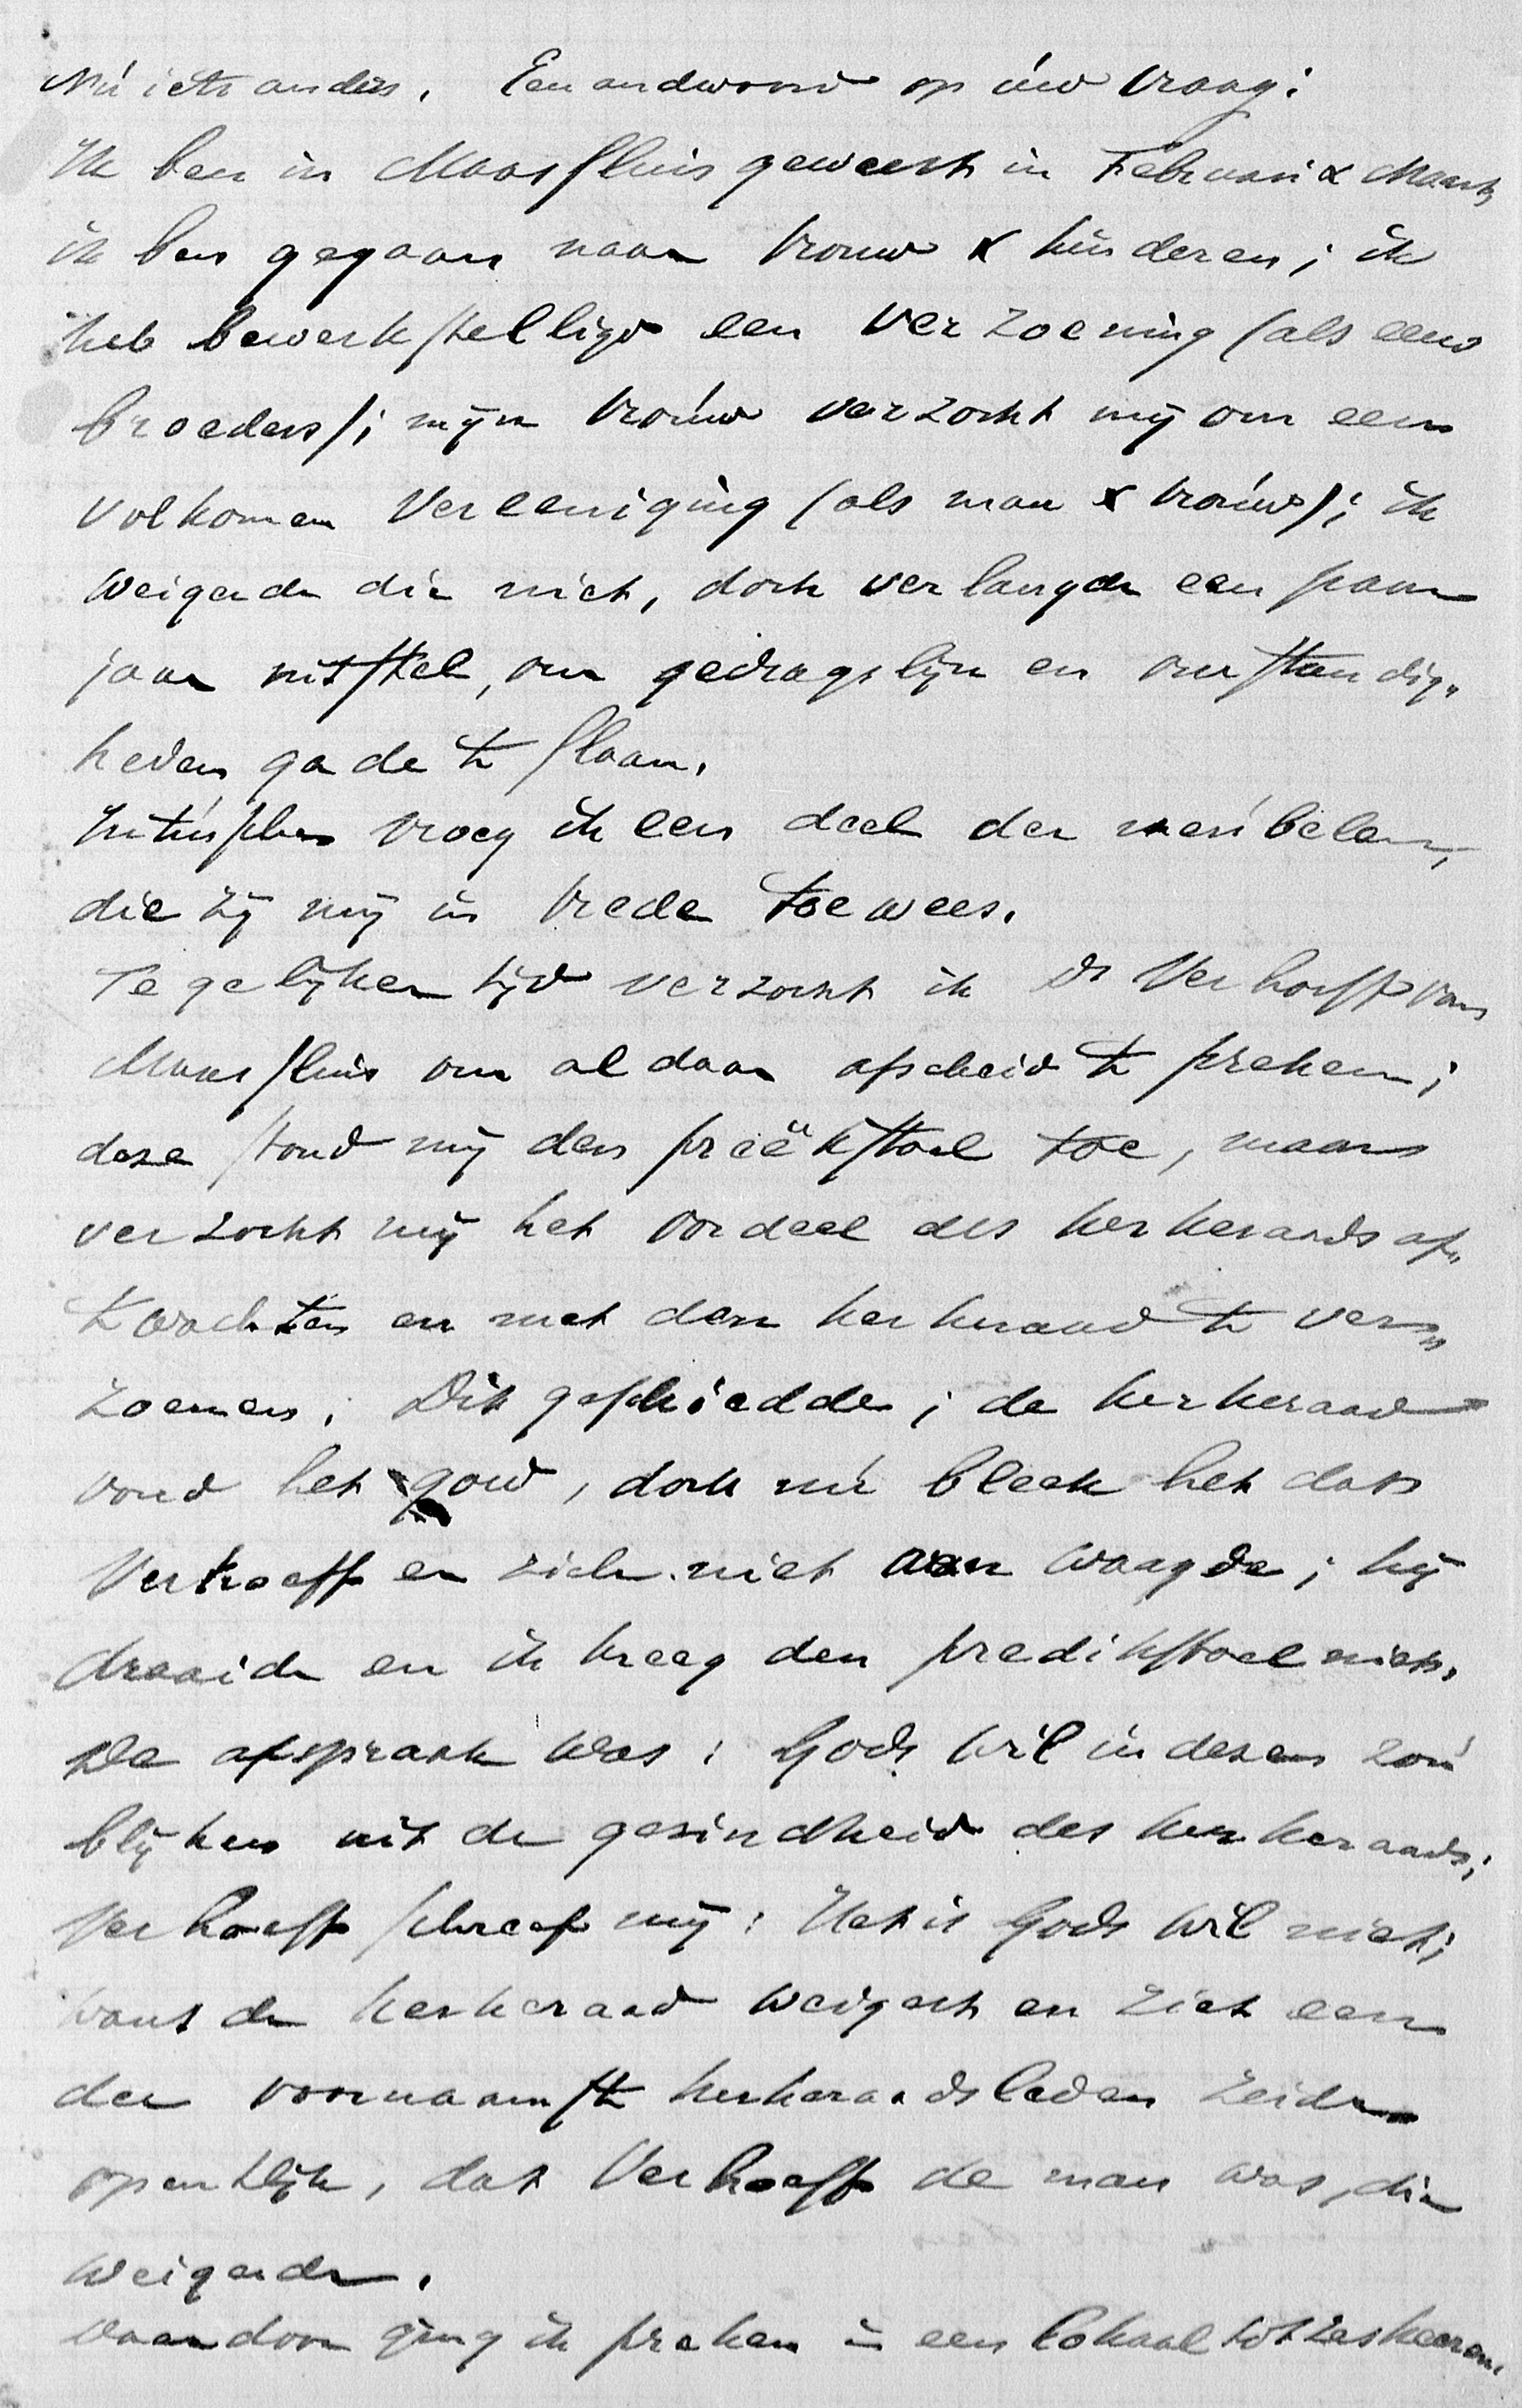 Nú iets anders. Een andwoord op úw vraag:
Ik ben in Maassluis geweest in Februari & Maart,
ik ben gegaan naar vrouw & kinderen; ik
heb bewerkstelligd een verzoening (als eens
broeders); mijn vroúw verzocht mij om een
volkomen vereeniging (als man & vroúw); ik
weigerde die niet, doch verlangde een paar
jaar uitstel, om gedragslijn en omstandig„
heden gade te slaan.
Intússchen vroeg ik een deel der meúbelen,
die zij mij in vrede toewees.
Te gelijker tijd verzocht ik Ds Verhoeff van
Maassluis om aldaar afscheid te preken;
deze stond mij den preëkstoel toe, maar
verzocht mij het oordeel des kerkeraads af„
te wachten en met den kerkeraad te ver„
zoenen. Dit geschiedde; de kerkeraad
vond het goed, doch nú bleek het dat
Verhoeff er zich niet aan waagde; hij
draaide en ik kreeg den predikstoel niet.
De afspraak was: Gods wil in dezen zoú
blijken uit de gezindheid des kerkeraads;
Verhoeff schreef mij: Het is Gods wil niet;
want de kerkeraad weigert en ziet een
der voornaamste kerkeraadsleden zeide
openlijk, dat Verhoeff de man was, die
weigerde.
Daardoor ging ik preken in een lokaal tot zes keeren.